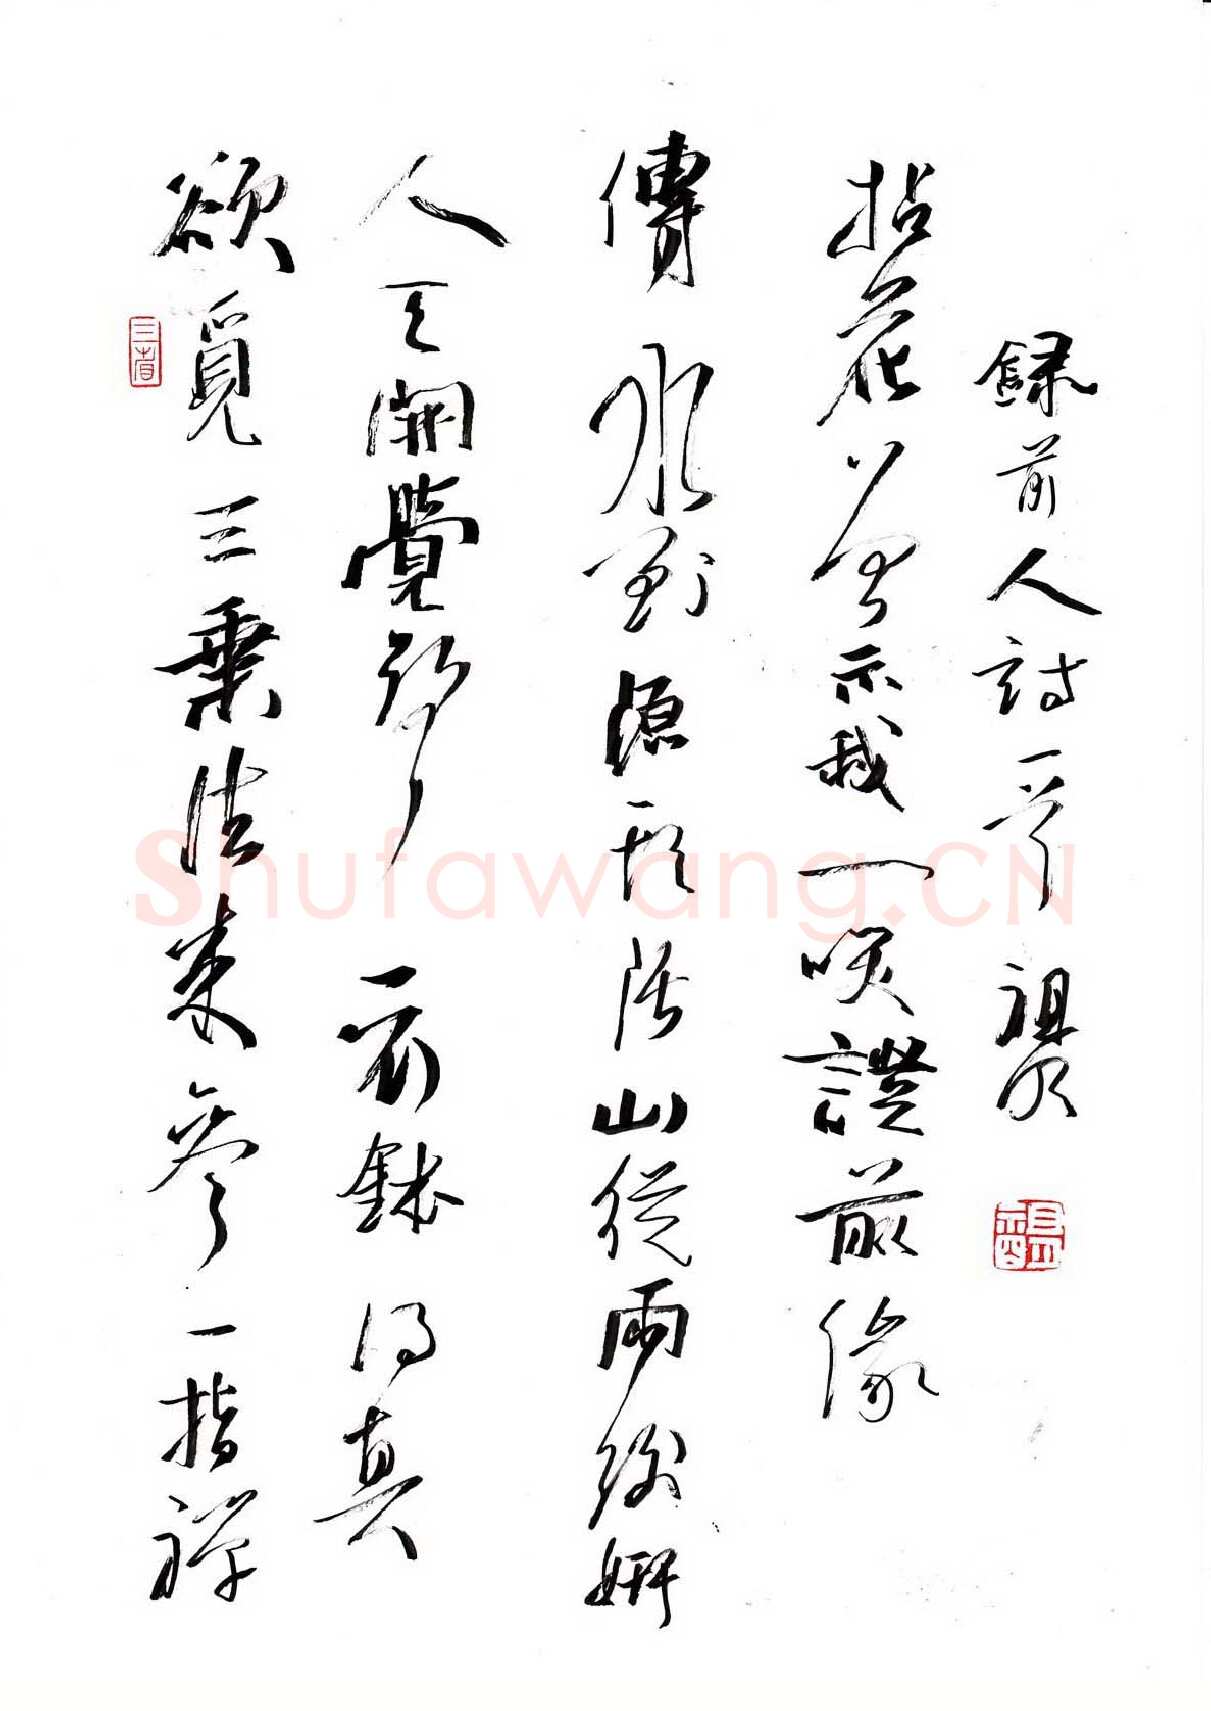 欲覓三乘法來參一指禪
人天開覺路衣鉢得真
傳水到源頭活山從雨後妍
拈花曾示我一笑證前緣
錄前人詩一首祖
三省
Shufawang.CN